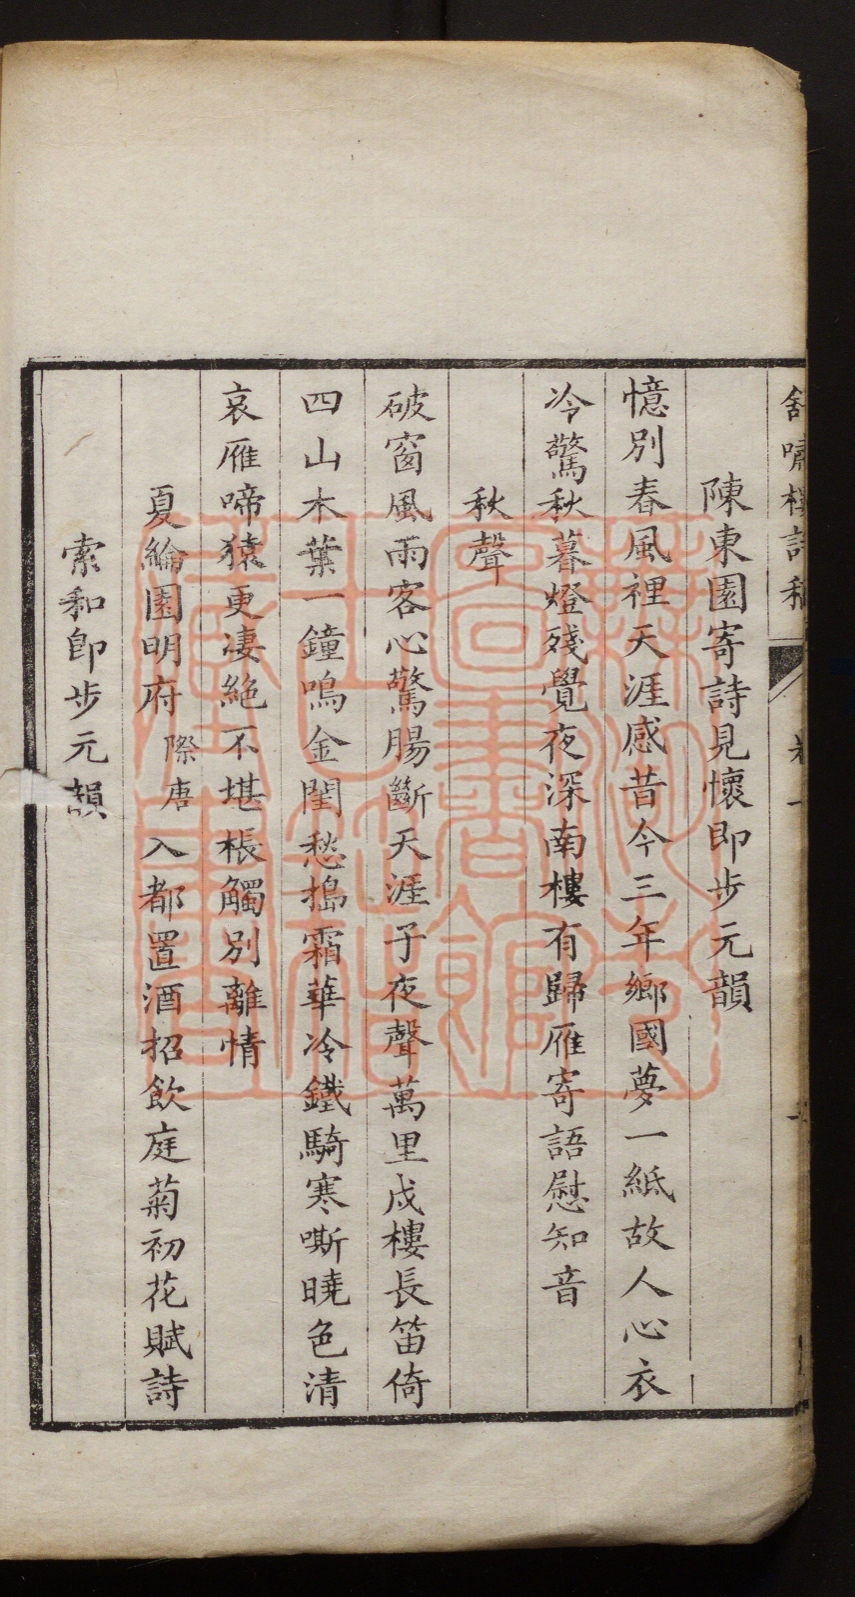 舒嘯樓詩稿 卷一
陳東園寄詩見懷即步元韻
憶別春風裡天涯感昔今三年鄉國夢一紙故人心衣
冷驚秋暮燈殘覺夜深南樓有歸雁寄語慰知音
秋聲
破窗風雨客心驚腸斷天涯子夜聲萬里戍樓長笛倚
四山木葉一鐘鳴金閨愁搗霜華冷鐵騎寒嘶曉色清
哀雁啼猿更淒絕不堪棖觸別離情
夏綸園明府際唐入都置酒招飲庭菊初花賦詩
索和即步元韻